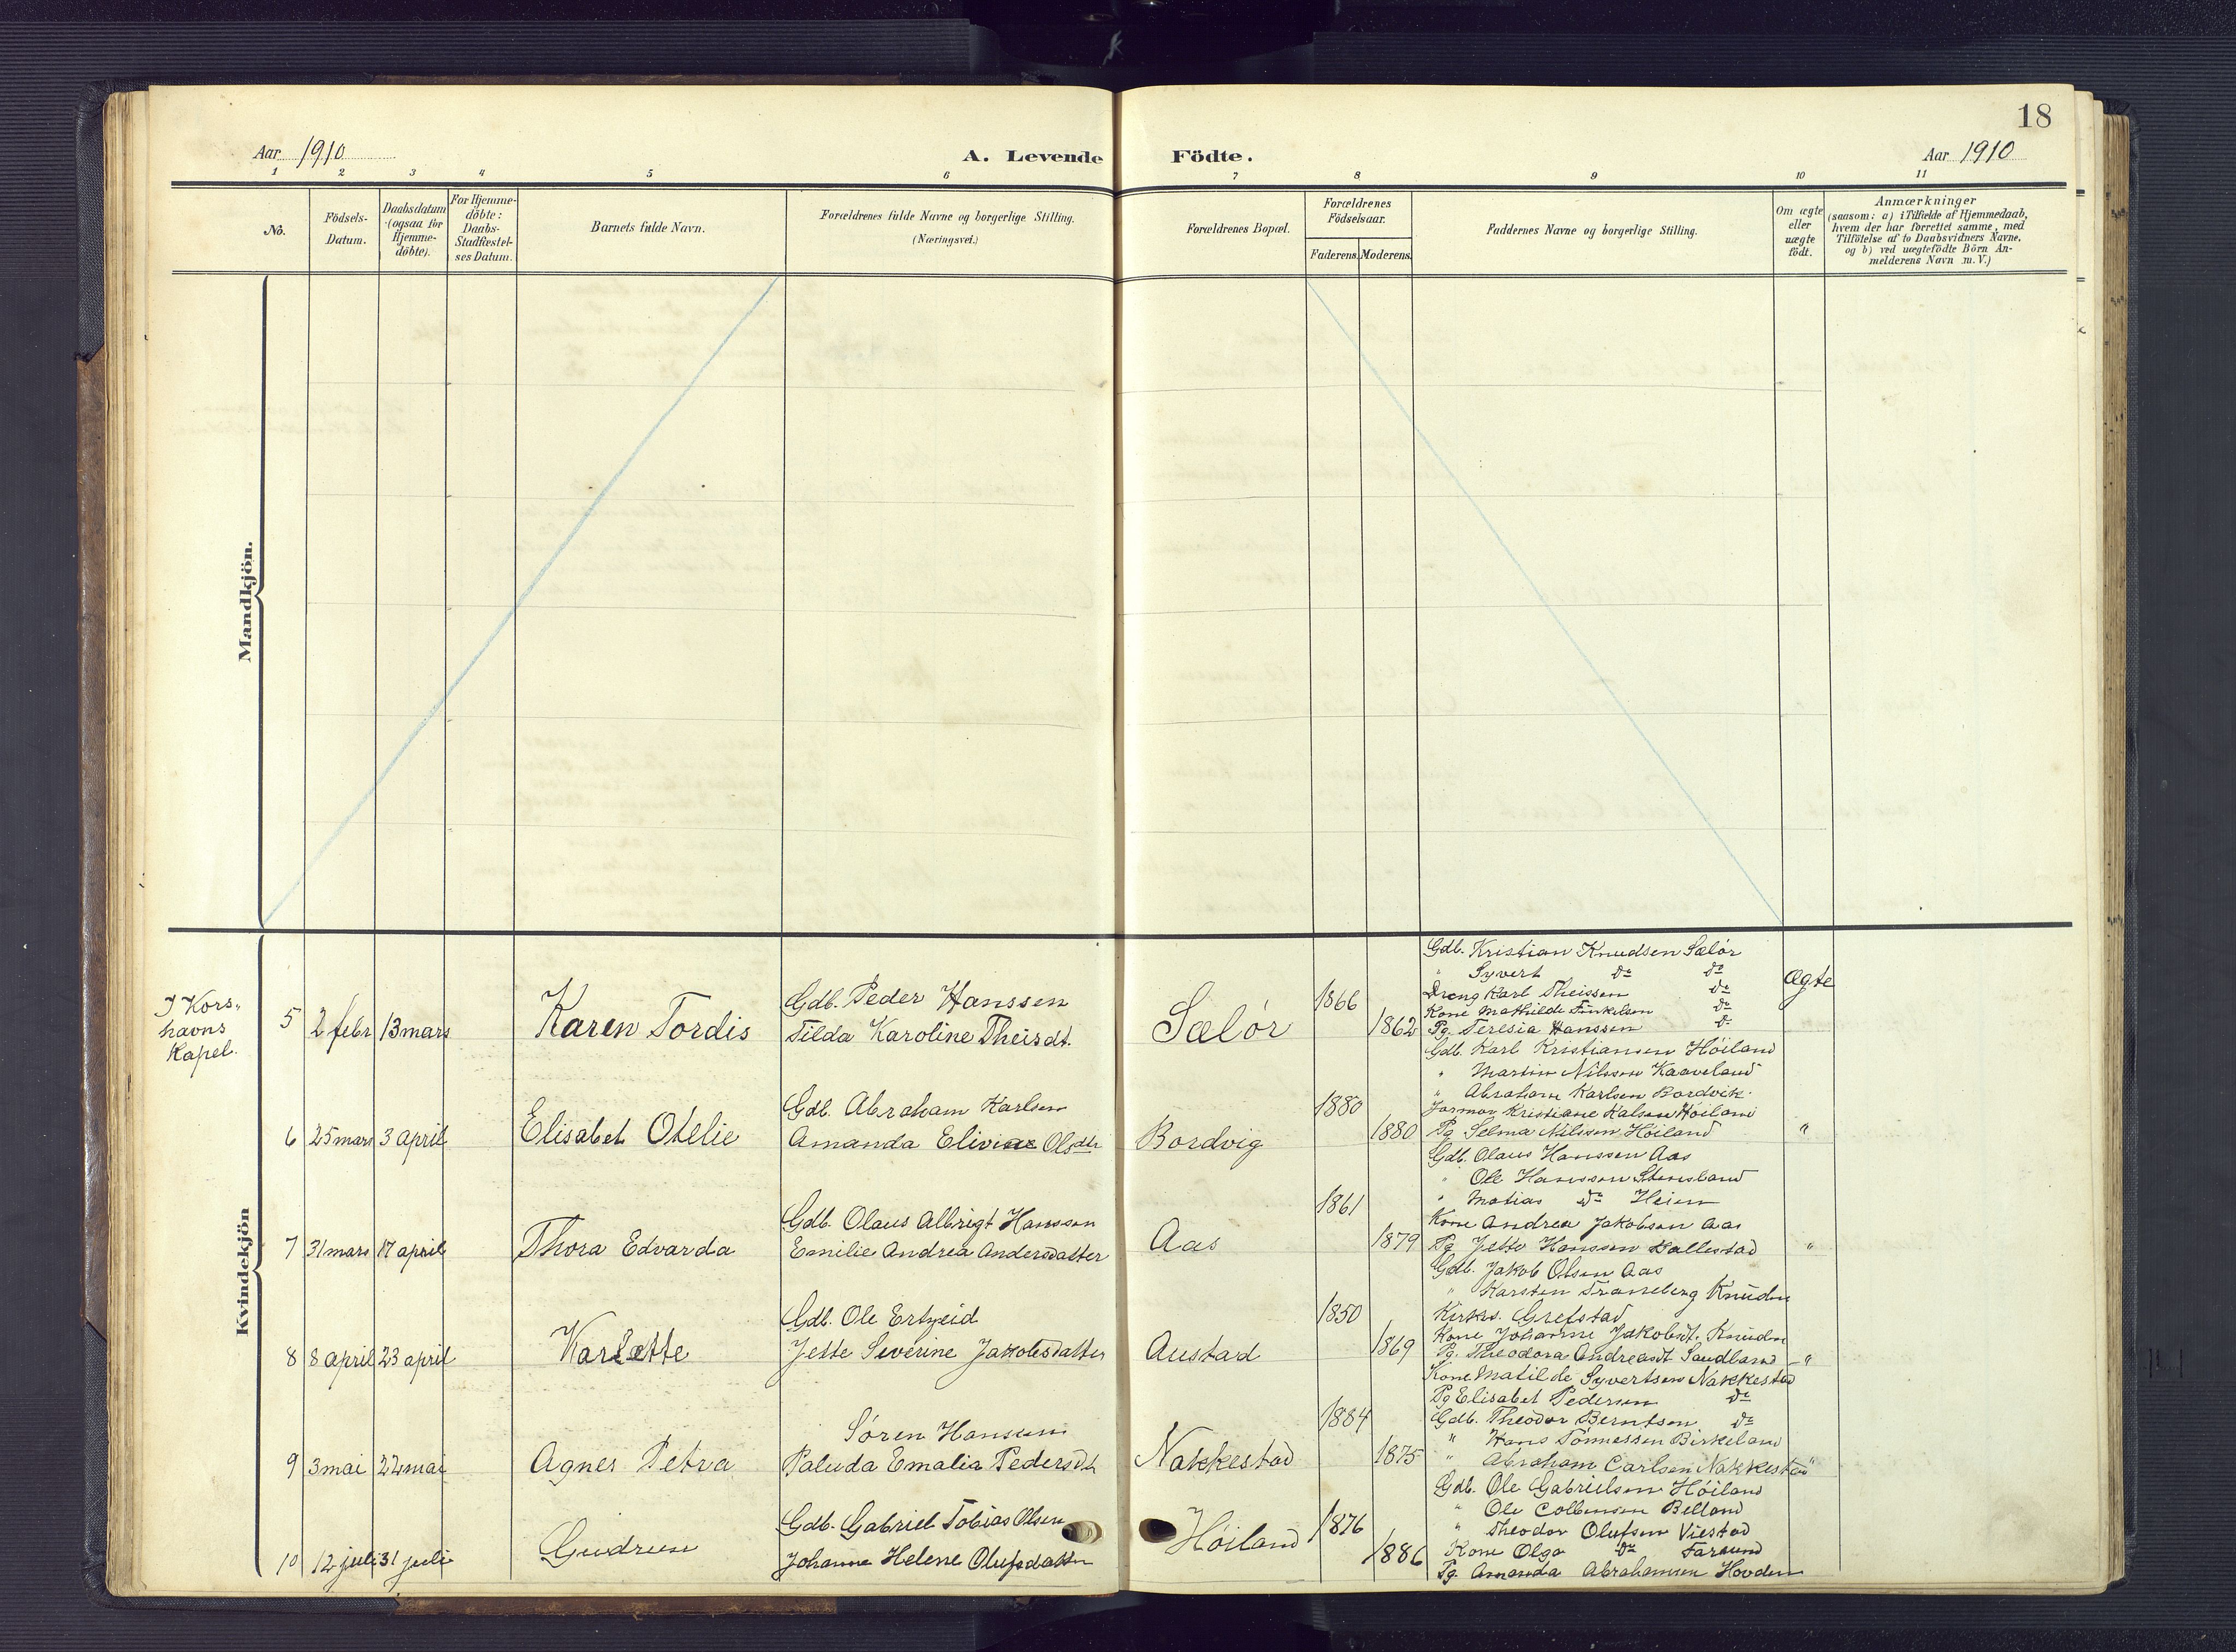 18
Aar 1910
A. Levende Födte.
Aar 1910
1 2 3 4 5 6 7 8 9 10 11
No.
Födsels-
Datum.
Daabsdatum
(ogsaa for
Hjemme-
döbte).
For Hjemme-
döbte:
Daabs-
Stadfæstel-
ses Datum.
Barnets fulde Navn.
Forældrenes fulde Navne og borgerlige Stilling.
(Næringsvei.)
Forældrenes Bopæl.
Forældrenes
Födselsaar.
Faderens. Moderens.
Faddernes Navne og borgerlige Stilling.
Om ægte
eller
uægte
födt.
Anmærkninger
(saasom: a) i Tilfælde af Hjemmedaab,
hvem der har forrettet samme, med
Tilföielse af to Daabsvidners Navne,
og b) ved uægtefödte Börn An-
melderens Navn m.V.)
Mandkjön.
Kvindekjön
I Kors-
havns
Kapel.
5 2 febr 13 mars Karen Tordis
Gdb. Peder Hanssen
Tilda Karoline Theisdt.
Sælör
1866
1862
Gdb. Kristian Knudsen Sælör
" Syvert do do
Dreng Karl Theissen do
Kone Mathilde Tinkelsen do
Pg. Teresia Hanssen do
Ægte
6 25 mars 3 april Elisabet Otelie
Gdb. Abraham Karlsen
Amanda Elivine Olsdtr
Bordvig
1880
1880
Gdb. Karl Kristiansen Höiland
" Martin Nilssen Kaaveland
" Abraham Karlsen Bordvik.
Jormor Kristiane Kalsen Höiland
Pg Selma Nilssen Höiland
"
7 31 mars 17 april Thora Edvarda
Gdb. Olaus Albrigt Hanssen
Emilie Andrea Andersdatter
Aas
1861
1879
Gdb. Olaus Hanssen Aas
" Ole Hanssen Stensland
" Matias do Heien
Kone Andrea Jakobsen Aas
Pg Jette Hanssen Kallestad
"
8 8 april 23 april Karlotte
Gdb. Ole Ertzeid
Jette Severine Jakobsdatter
Austad
1850
1869
Gdb. Jakob Olsen Aas
" Karsten Traneberg Knudsen
Kirks. Grefstad
Kone Johanne Jakobsdt. Knudsen
Pg. Theodora Andreasdt Sandland
"
9 3 mai 22 mai Agnes Petra
Sören Hanssen
Paluda Emalia Pedersdtr
Nakkestad
1884
1875
Kone Matilde Syvertsen Nakkestad
Pg Elisabet Pedersen do
Gdb. Theodor Berntsen do
" Hans Tönnessen Birkeland
" Abraham Carlsen Nakkestad
"
10 12 juli 31 juli Gudrun
Gdb. Gabriel Tobias Olsen
Johanne Helene Olufsdatter
Höiland
1876
1886
Gdb. Ole Gabrielsen Höiland
" Ole Colbensen Belland
" Theodor Olufsen Viestad
Kone Olga do Farsund
Pg. Amanda Abrahamsen Hovden